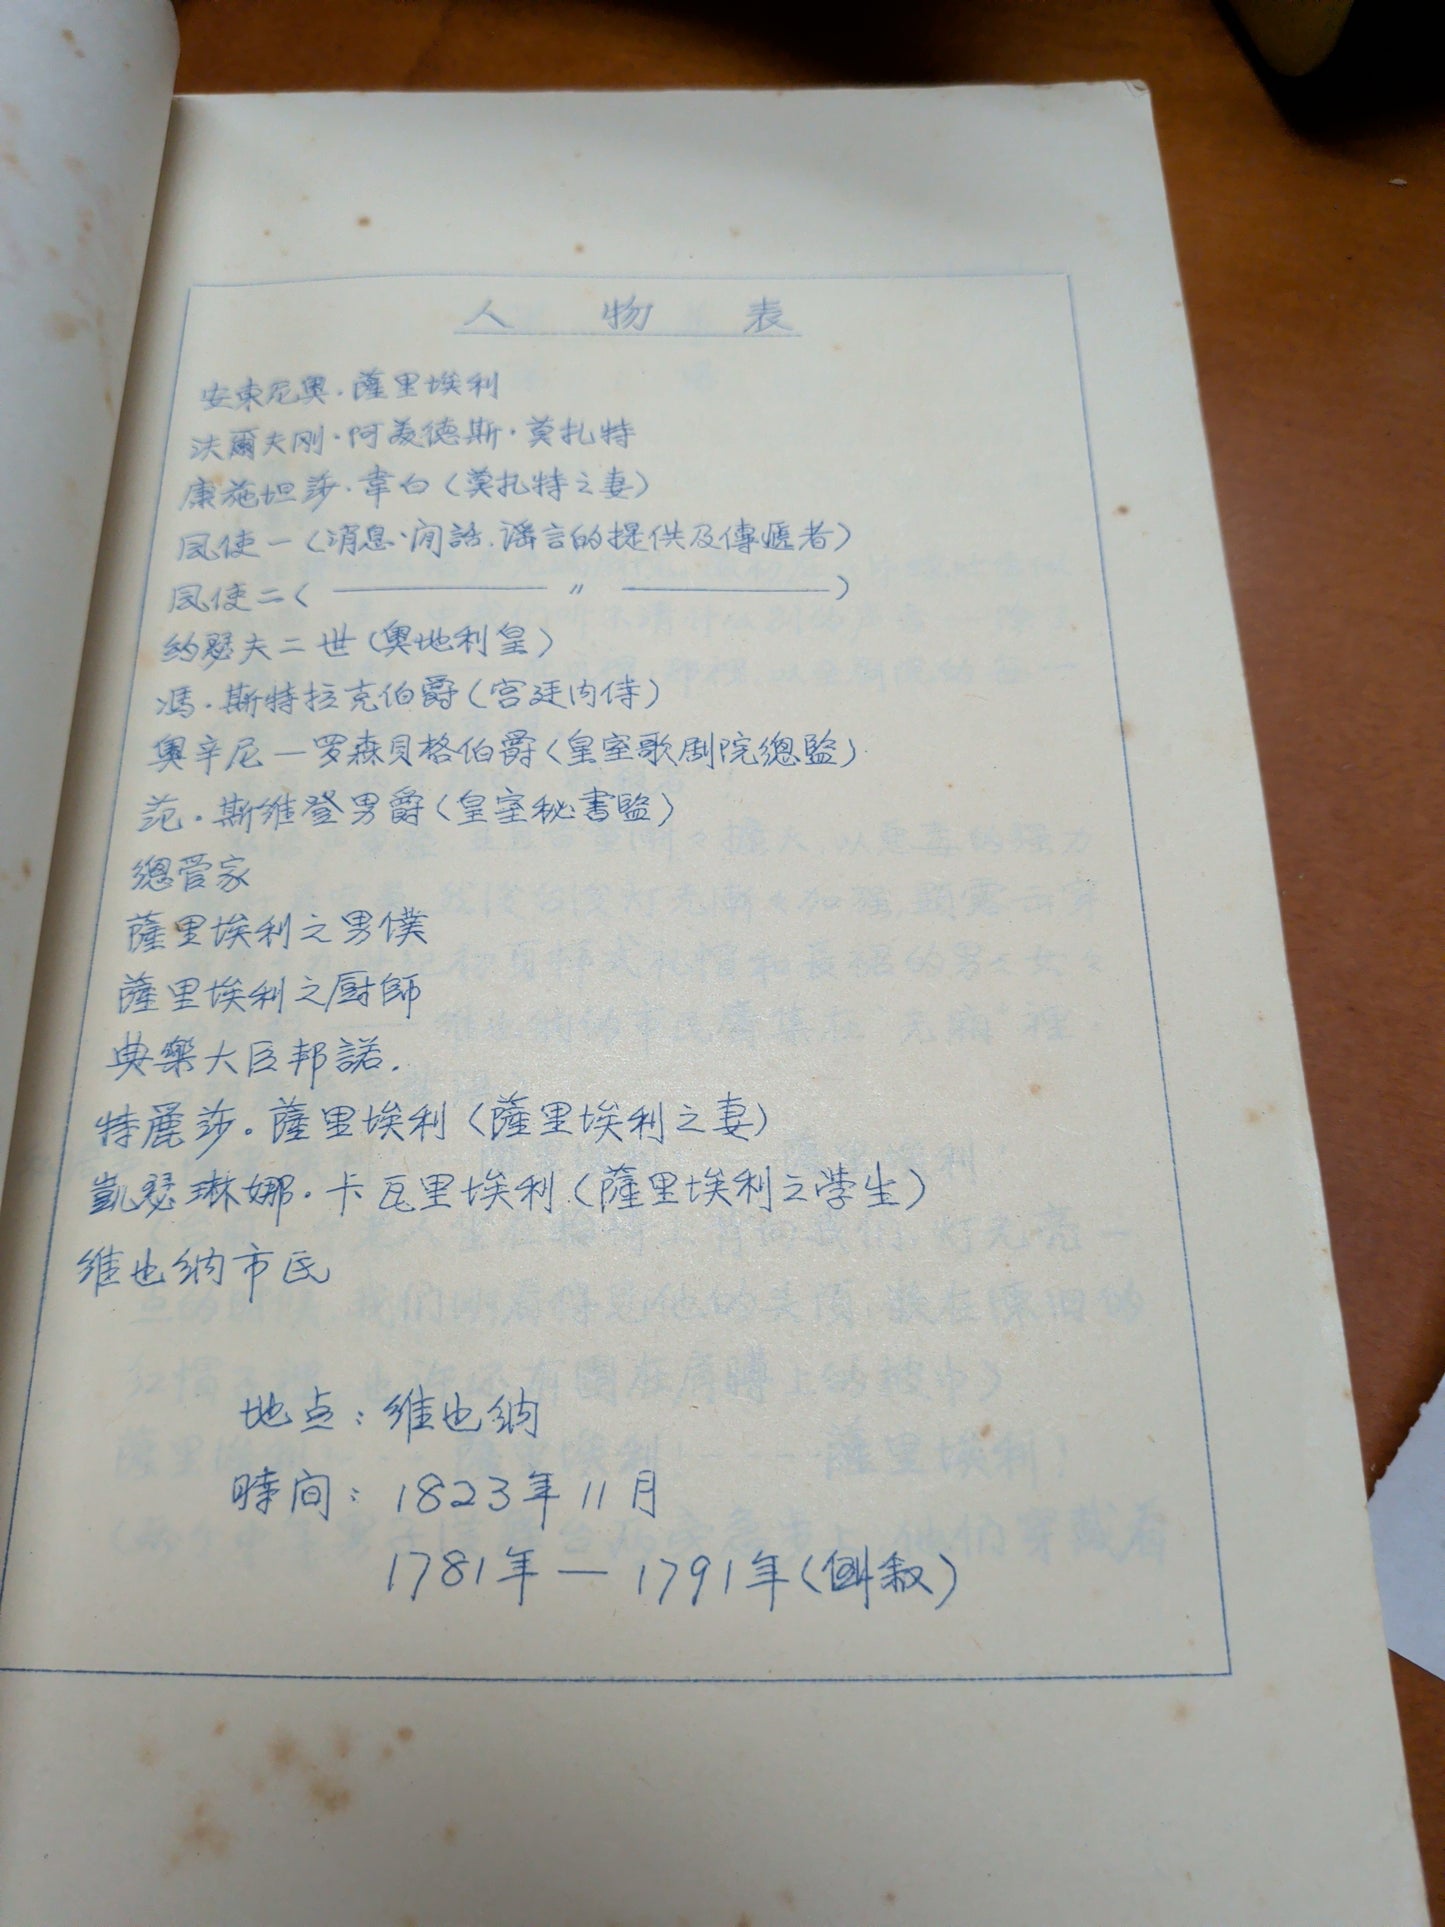 人物表
安東尼奧·薩里埃利
沃爾夫刚·阿美德斯·莫扎特
康施坦莎·韋白（莫扎特之妻）
风使一（消息、闲話、謠言的提供及傳遞者）
风使二（——〃——）
約瑟夫二世（奧地利皇）
馮·斯特拉克伯爵（宫廷内侍）
奥辛尼—罗森貝格伯爵（皇室歌剧院總監）
范·斯維登男爵（皇室秘書監）
總管家
薩里埃利之男僕
薩里埃利之厨師
典樂大臣邦諾.
特麗莎。薩里埃利（薩里埃利之妻）
凱瑟琳娜·卡瓦里埃利（薩里埃利之学生）
維也納市民
地点：維也納
時間：1823年11月
1781年—1791年（倒叙）